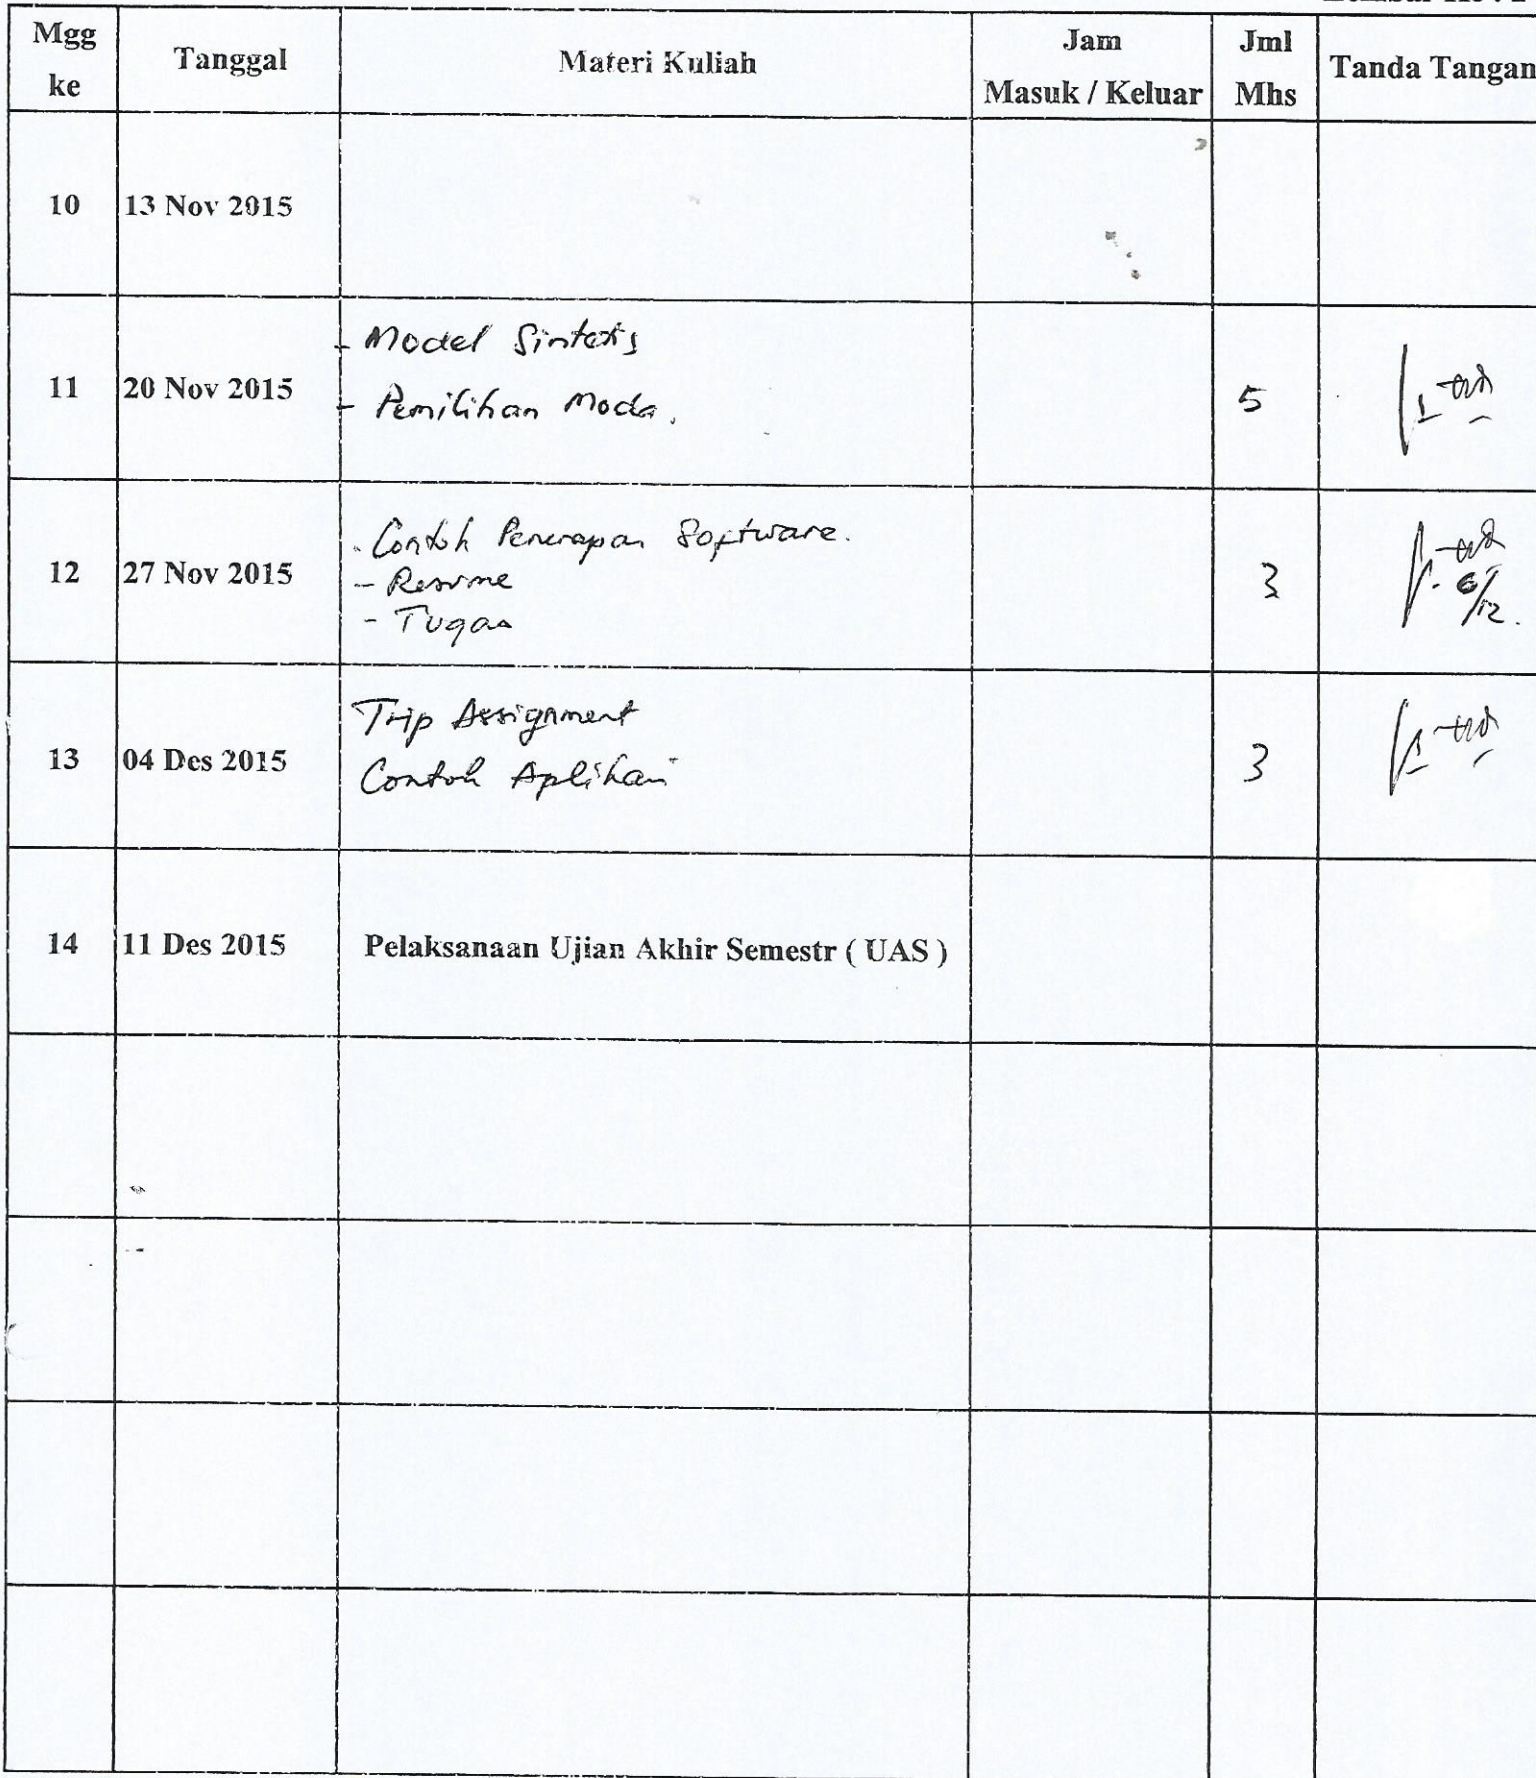 Mgg ke Tanggal Materi Kuliah Jam Masuk / Keluar Jml Mhs Tanda Tangan
10 13 Nov 2015
11 20 Nov 2015 - Model Sintetis 5
- Pemilihan Moda.
12 27 Nov 2015 - Contoh Penerapan Software. 3
- Resume
- Tugas
6/12.
13 04 Des 2015 Trip Assignment 3
Contoh Aplikasi
14 11 Des 2015 Pelaksanaan Ujian Akhir Semestr ( UAS )